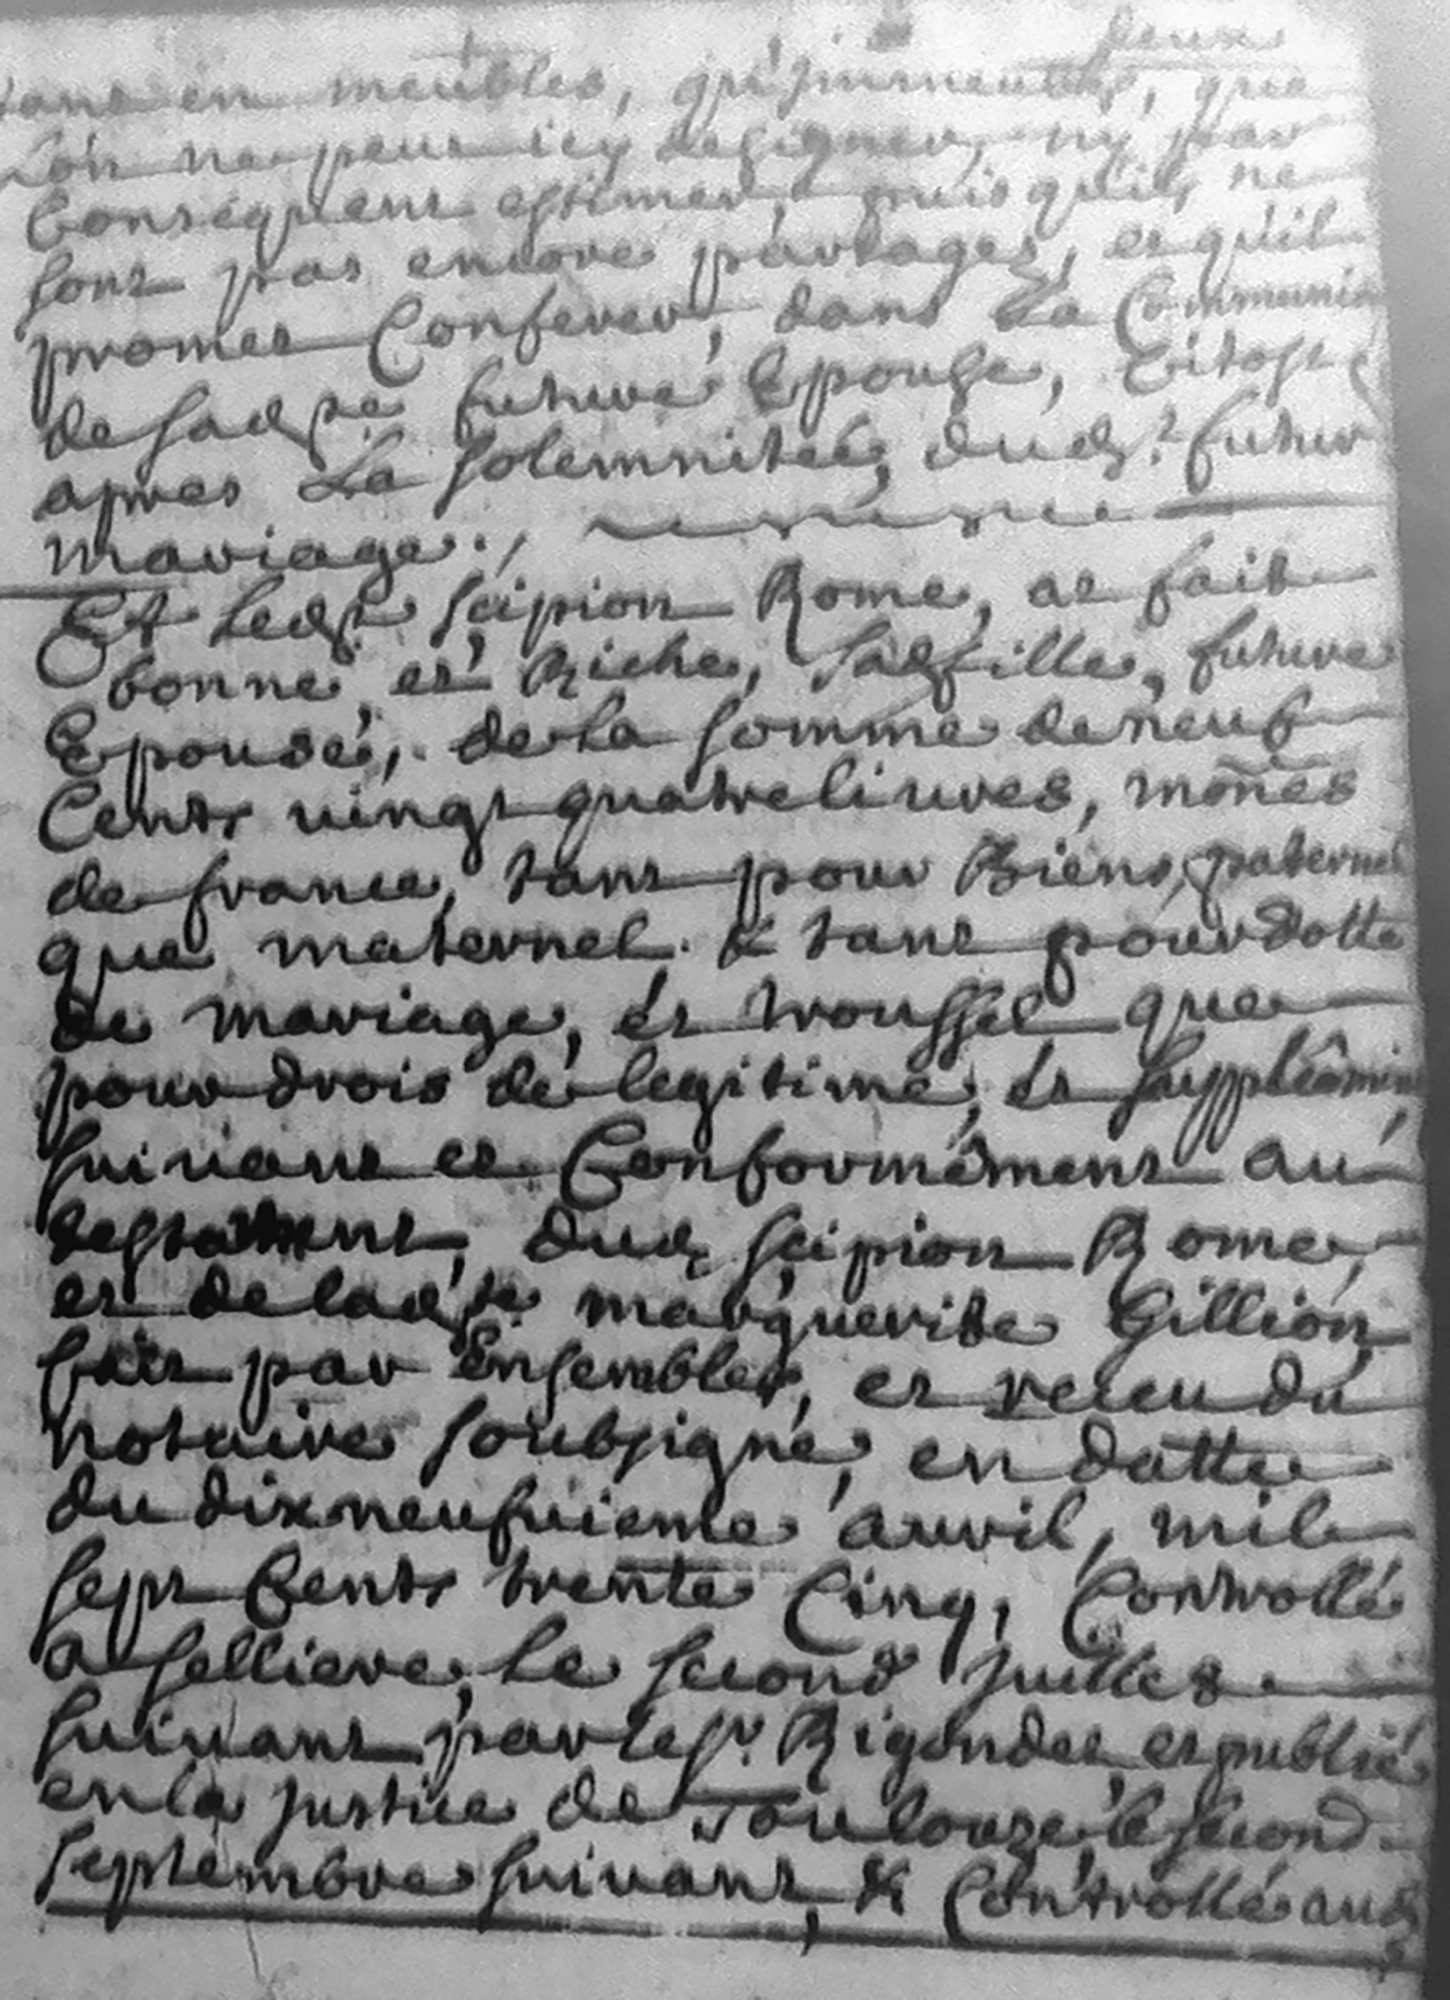 deux
tant en meubles, qu'jmmeubles, que
Lon ne peut icy designer, ny par
Consequent estimer, puisquils ne
sont pas encore partages, et quil
promet Conferer, dans La Communion
de sadte future Epouse, Citost
apres La solemnitée, dudt futur
mariage./.
Et Ledt Scipion Rome, at fait
bonne, et Riche, sadfille, future
Epouse, de la somme de neuf
Cents vingt quatre livres, mones
de france, tant pour Biens, paternel
que maternel. & tant pour dotte
de mariage, et troussel que
pour drois de legitime, et supplêment
suivant et Conformément au
testament, dud Scipion Rome,
et de ladte marguerite Gillion,
fait par Ensembles, et receu du
notaire soubsigné, en datte
du dixneufvieme avril, mil
sept Cents trente Cinq, Controllé
a Selliere, Le second juillet
suivant, par le sr Rigondet et publié
en la justice de Toulouze, le second
septembre suivant, & Controllé aud